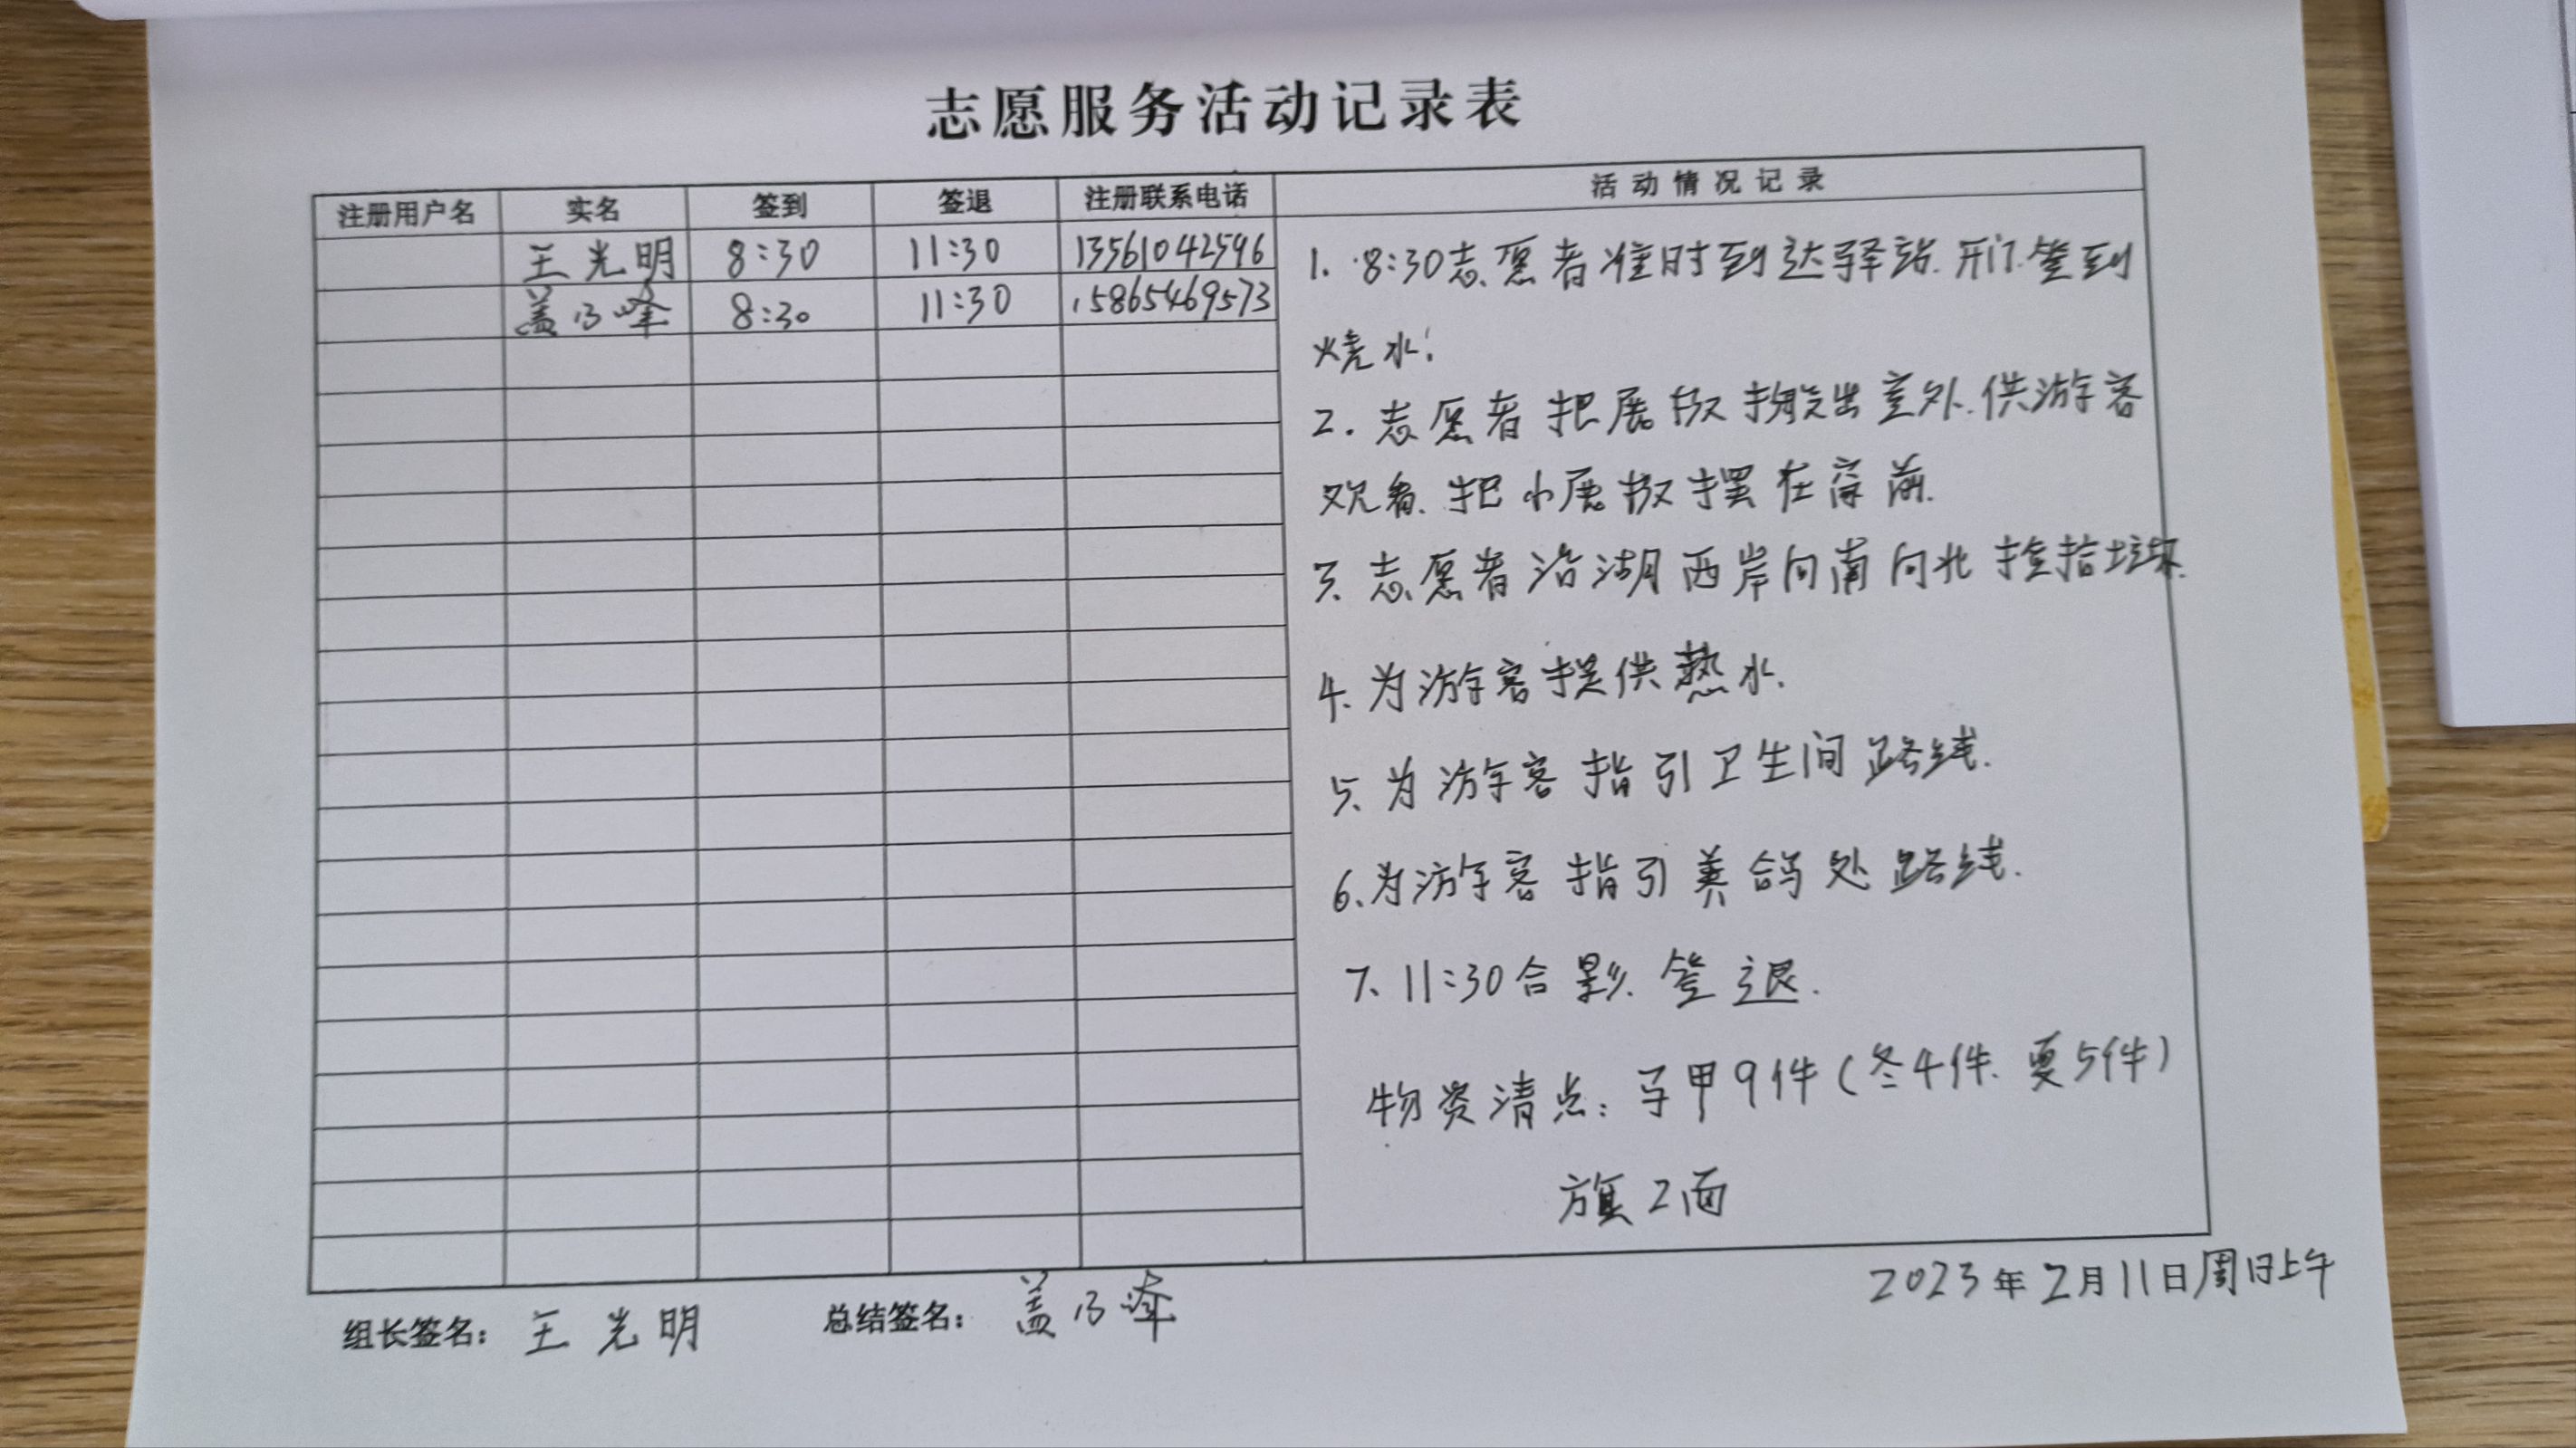 志愿服务活动记录表
注册用户名 实名 签到 签退 注册联系电话 活动情况记录
王光明 8:30 11:30 13561042596
盖乃峰 8:30 11:30 15865469573
1. 8:30志愿者准时到达驿站.开门.签到
烧水!
2. 志愿者把展板搬出室外.供游客
观看.把小展板摆在窗前.
3、志愿者沿湖西岸向南向北捡拾垃圾.
4、为游客提供热水.
5、为游客指引卫生间路线.
6、为游客指引美鸽处路线.
7、11:30合影.签退.
物资清点:马甲9件(冬4件.夏5件)
旗2面
2023年2月11日周日上午
组长签名: 王光明 总结签名: 盖乃峰